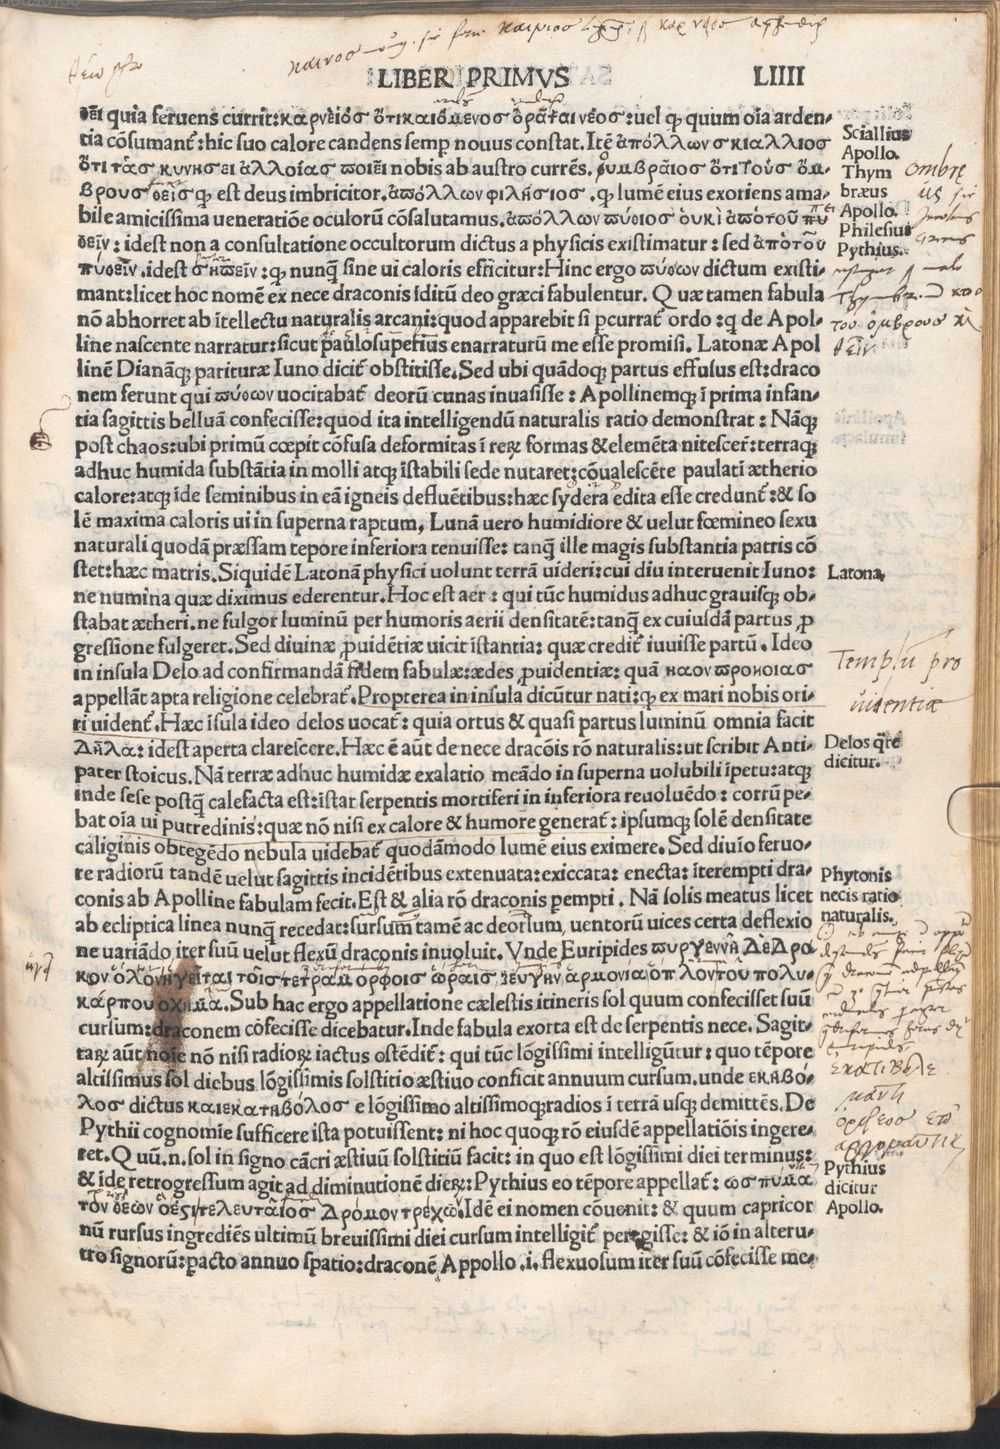 LIBER PRIMVS
LIIII
θεῖ quia feruens currit: καρνεἰόσ ὅτικαιόμενοσ ὁρᾶται νέοσ: uel ꝙ quum oīa arden-
tia cōsumant᷑: hic suo calore candens semp nouus constat. Itē ἀπόλλων σκιαλλιοσ
ὅτι τὰσ κυνησει αλλοίασ ποιεῖ nobis ab austro currēs. θυμβραῖοσ ὅτι Τοὺσ ὄμ-
βρουσ θεὶσ ꝙ est deus imbricitor. ἀπόλλων φιλήσιοσ. ꝙ lumē eius exoriens ama-
bile amicissima ueneratiōe oculorū cōsalutamus. ἀπόλλων πύθιοσ ὀυκὶ ἀπὸ τοῦ πυ
θεῖν: idest non a consultatione occultorum dictus a physicis existimatur: sed ἀπὸ τοῦ
πύθειν. idest σήπειν: ꝙ nunꝗ̄ sine ui caloris efficitur: Hinc ergo πύθων dictum existi-
mant: licet hoc nomē ex nece draconis īditū deo græci fabulentur. Q uæ tamen fabula
nō abhorret ab ītellectu naturalis arcani: quod apparebit si ꝑcurrat᷑ ordo: q de Apol-
line nascente narratur: sicut paulosuperius enarraturū me esse promisi. Latonæ Apol
linē Dianāꝙ parituræ Iuno dicit᷑ obstitisse. Sed ubi quādoꝙ partus effusus est: draco
nem ferunt qui πύθων uocitabat᷑ deorū cunas inuasisse: Apollinemꝙ ī prima infan-
tia sagittis belluā confecisse: quod ita intelligendū naturalis ratio demonstrat: Nāꝙ
post chaos: ubi primū cœpit cōfusa deformitas ī reꝝ formas & elemēta nitescer᷑: terraꝙ
adhuc humida substātia in molli atꝙ īstabili sede nutaret: cōualescēte paulati ætherio
calore: atꝙ īde seminibus in eā igneis defluētibus: hæc sydera edita esse credunt᷑: & so
lē maxima caloris ui in superna raptum, Lunā uero humidiore & uelut fœmineo sexu
naturali quodā præssam tepore inferiora tenuisse: tanꝗ̄ ille magis substantia patris cō
stet: hæc matris. Siquidē Latonā physici uolunt terrā uideri: cui diu interuenit Iuno:
ne numina quæ diximus ederentur. Hoc est aer: qui tūc humidus adhuc grauisꝙ ob-
stabat ætheri. ne fulgor luminū per humoris aerii densitatē: tanꝗ̄ ex cuiusdā partus ꝓ
gressione fulgeret. Sed diuinæ ꝓuidētiæ uicit īstantia: quæ credit᷑ iuuisse partū. Ideo
in insula Delo ad confirmandā fidem fabulæ: ædes ꝓuidentiæ: quā ναον προνοιασ
appellāt apta religione celebrat᷑. Propterea in insula dicūtur nati: ꝙ ex mari nobis ori-
ri uident᷑. Hæc īsula ideo delos uocat᷑: quia ortus & quasi partus luminū omnia facit
Δῆλα: idest aperta clarescere. Hæc ē aūt de nece dracōis rō naturalis: ut scribit Anti-
pater stoicus. Nā terræ adhuc humidæ exalatio meādo in superna uolubili īpetu: atꝙ
inde sese postꝗ̄ calefacta est: īstar serpentis mortiferi in inferiora reuoluēdo: corrū pe-
bat oīa ui putredinis: quæ nō nisi ex calore & humore generat᷑: ipsumꝙ solē densitate
caliginis obtegēdo nebula uidebat᷑ quodāmodo lumē eius eximere. Sed diuīo feruo-
re radiorū tandē uelut sagittis incidētibus extenuata: exiccata: enecta: īterempti dra-
conis ab Apolline fabulam fecit. Est & alia rō draconis pempti. Nā solis meatus licet
ab ecliptica linea nunꝗ̄ recedat: sursum tamē ac deorsum, uentorū uices certa deflexio
ne uariādo iter suū uelut flexū draconis inuoluit. Vnde Euripides πυργεννῆ ΔὲΔρα
κον ὁλονἡγεῖται τοῖσ τετραμ ορφοισ ὡραισ ζευγὴν ἁρμονία ὁπλοντου πολυ-
κάρπου οχημα. Sub hac ergo appellatione cælestis itineris sol quum confecisset suū
cursum: draconem cōfecisse dicebatur. Inde fabula exorta est de serpentis nece. Sagit-
taꝝ aūt noīe nō nisi radioꝝ iactus ostēdit᷑: qui tūc lōgissimi intelligūtur: quo tēpore
altissimus sol diebus lōgissimis solstitio æstiuo conficit annuum cursum. unde εκηβό-
λοσ dictus καιεκατηβόλοσ e lōgissimo altissimoꝙ radios ī terrā usꝙ demittēs. De
Pythii cognomīe sufficere ista potuissent: ni hoc quoꝙ rō eiusdē appellatiōis ingere-
ret. Q uū. n. sol in signo cācri æstiuū solstitiū facit: in quo est lōgissimi diei terminus:
& īde retrogressum agit ad diminutionē dieꝝ: Pythius eo tēpore appellat᷑: ωσ πυμα
τὸν θεὼν ὁἐςι τελευταῖοσ Δρόμον τρέχων. Idē ei nomen cōuenit: & quum capricor
nū rursus ingrediēs ultimū breuissimi diei cursum intelligit᷑ peregisse: & iō in alteru-
tro signorū: pacto annuo spatio: draconē Appollo .i. flexuosum iter suū cōfecisse me-
Sciallius
Apollo.
Thym
bræus
Apollo.
Philesius
Pythius.
Latona,
Templū pro
uidentiæ
Delos q̄re
dicitur.
Phytonis
necis ratio
naturalis.
Pythius
dicitur
Apollo.